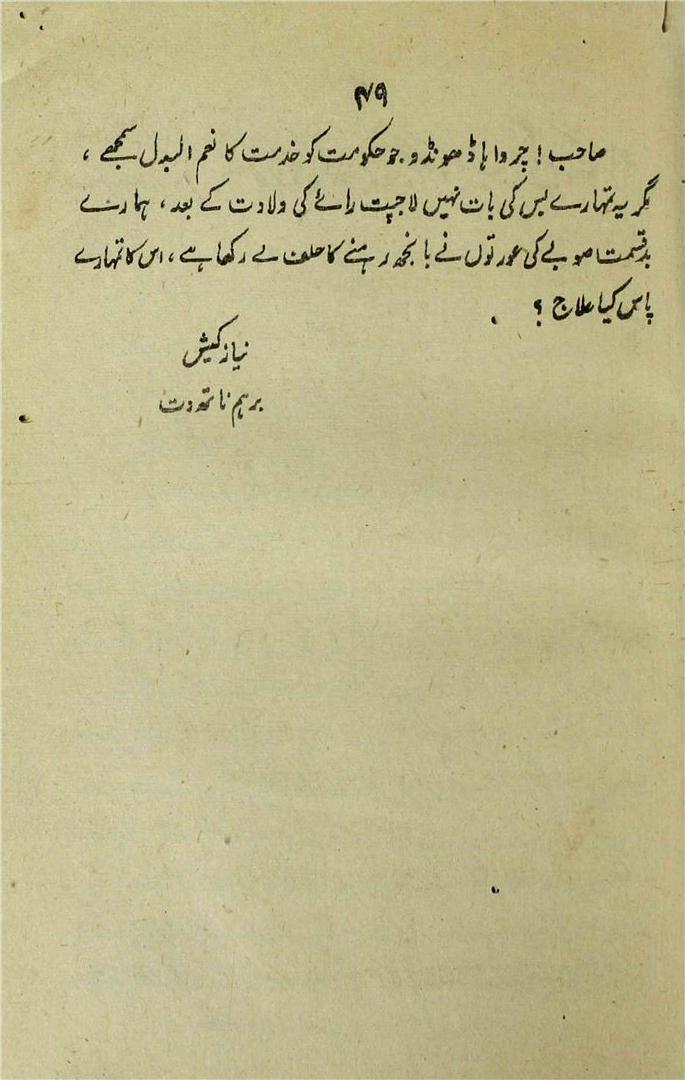 ۴۹
صاحب! چرواہا ڈھونڈو جو حکومت کو خدمت کا نعم البدل سمجھے،
مگر یہ تمہارے بس کی بات نہیں لاجپت رائے کی ولادت کے بعد، ہمارے
بدقسمت صوبے کی عورتوں نے بانجھ رہنے کا حلف لے رکھا ہے، اس کا تمہارے
پاس کیا علاج ؟
نیاز کیش
برہم ناتھ دت